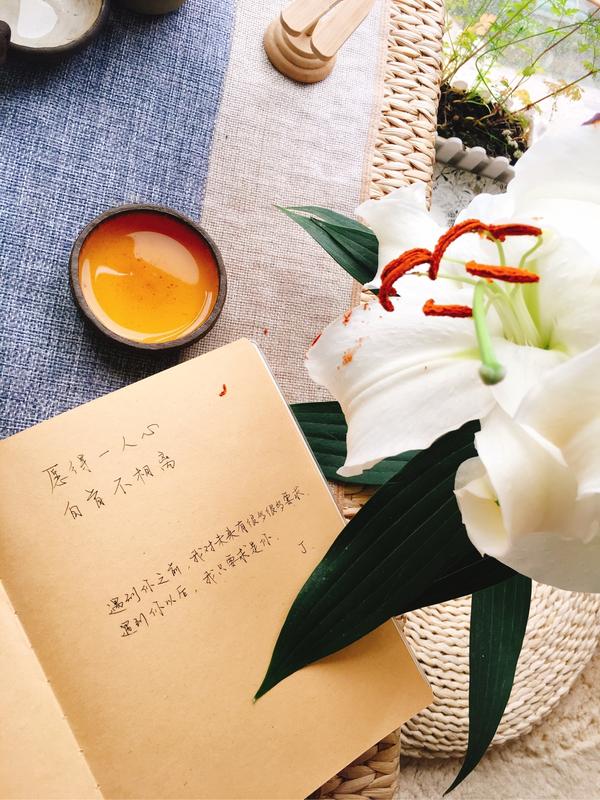 愿得一人心
白首不相离
遇到你之前，我对未来有很多很多要求.
遇到你以后，我只要求是你.
J